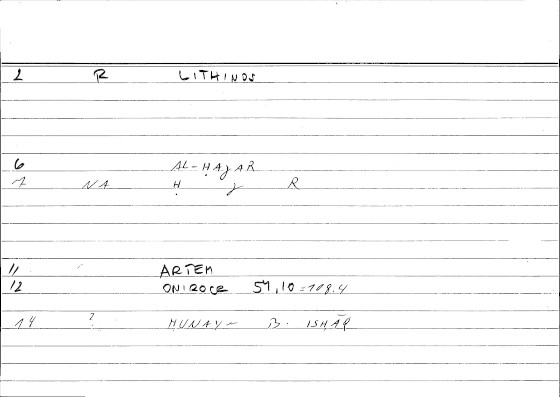 1 R LITHINOS
6 AL-ḤAJAR
7 NA Ḥ J R
11 ARTEM
12 ONIROCR 57,10 = 108.4
14 ? ḤUNAY- B. ISḤĀQ